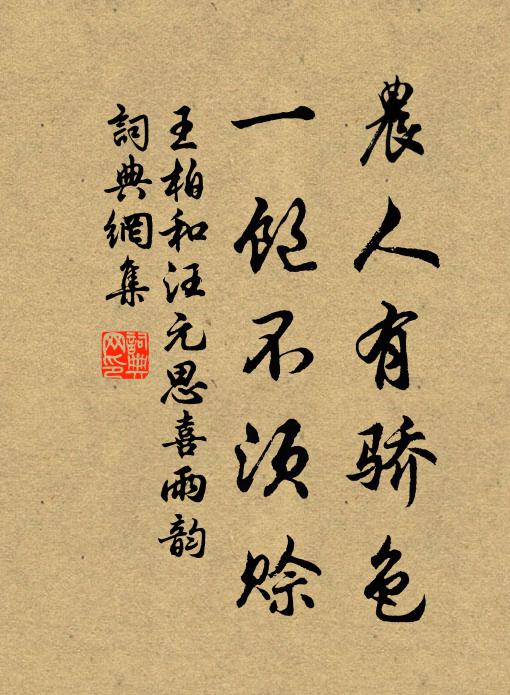 農人有骄色
一飽不須賒
王柏和汪元思喜雨韵
詞典網集
詞典網印